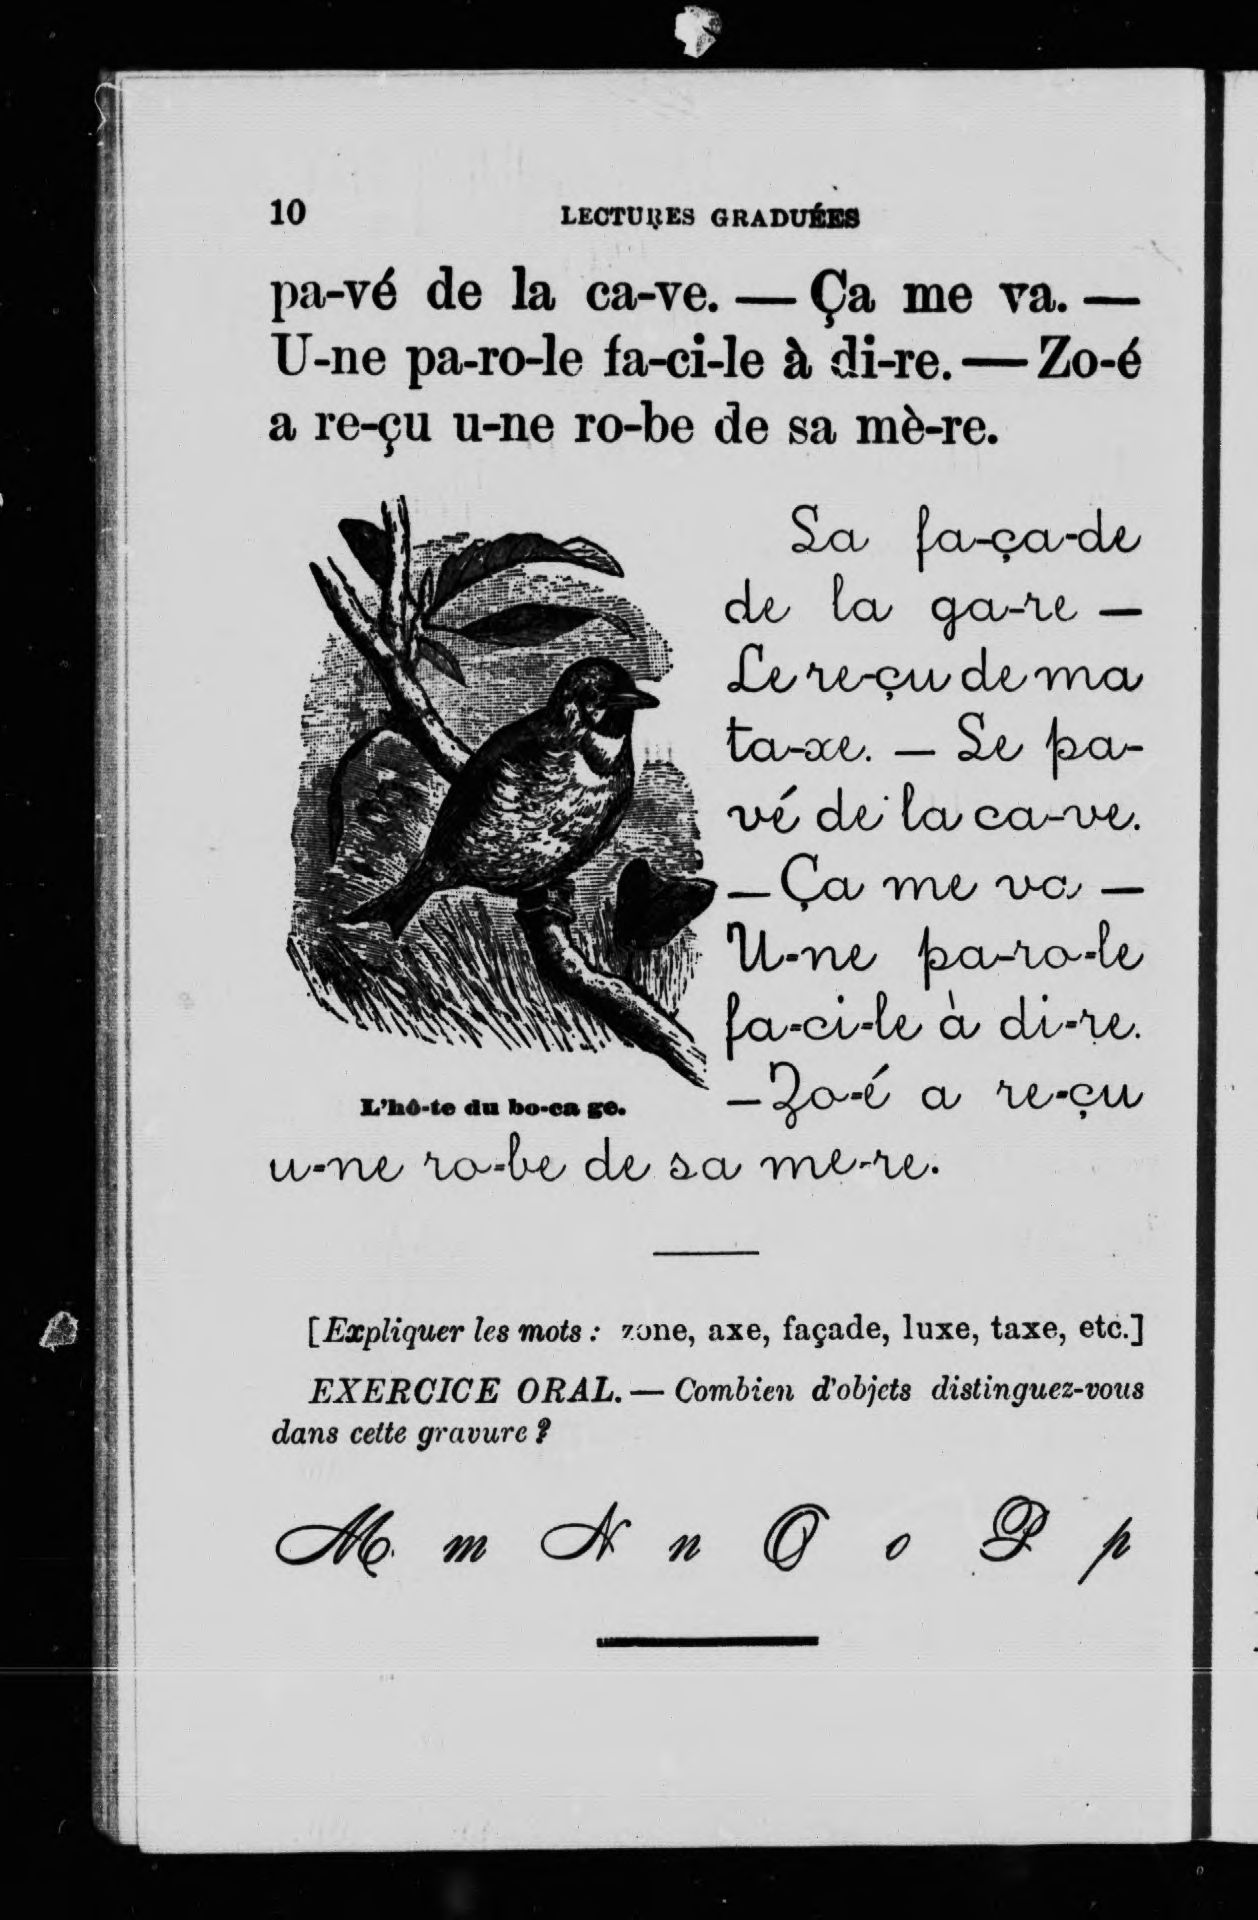 10 LECTURES GRADUÉES
pa-vé de la ca-ve. — Ça me va. —
U-ne pa-ro-le fa-ci-le à di-re. — Zo-é
a re-çu u-ne ro-be de sa mè-re.
La fa-ça-de
de la ga-re —
Le re-çu de ma
ta-xe. — Le pa-
vé de la ca-ve.
— Ça me va —
U-ne pa-ro-le
fa-ci-le à di-re.
— Zo-é a re-çu
L'hô-te du bo-ca ge.
u-ne ro-be de sa me-re.
[Expliquer les mots : zone, axe, façade, luxe, taxe, etc.]
EXERCICE ORAL. — Combien d'objets distinguez-vous
dans cette gravure ?
M m N n O o P p